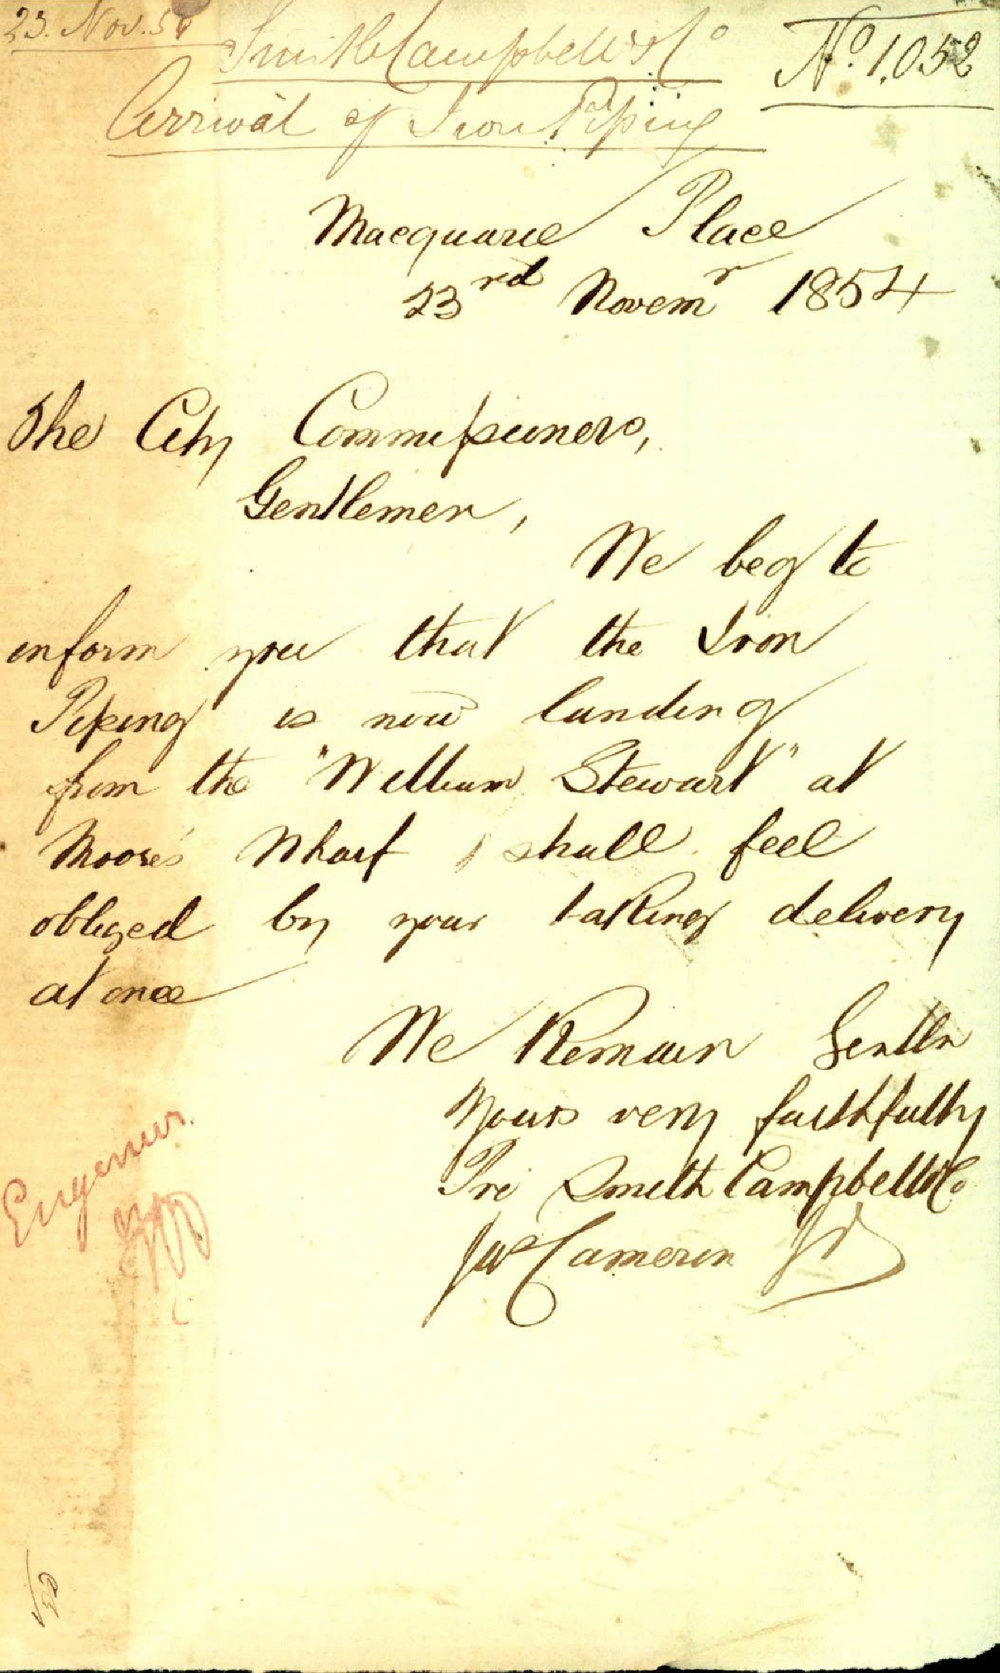 23. Nov. 54
Smith Campbell & Co
No. 1.052
Arrival of Iron Piping
Macquarie Place
23rd Novemr 1854
The City Commissioners,
Gentlemen,
We beg to
inform you that the Iron
Piping is now landing
from the "William Stewart" at
Moore's Wharf & shall feel
obliged by your taking delivery
at once
We Remain Gentln
Yours very faithfully
Pro Smith Campbell & Co
Jas Cameron Jr
Engineer.